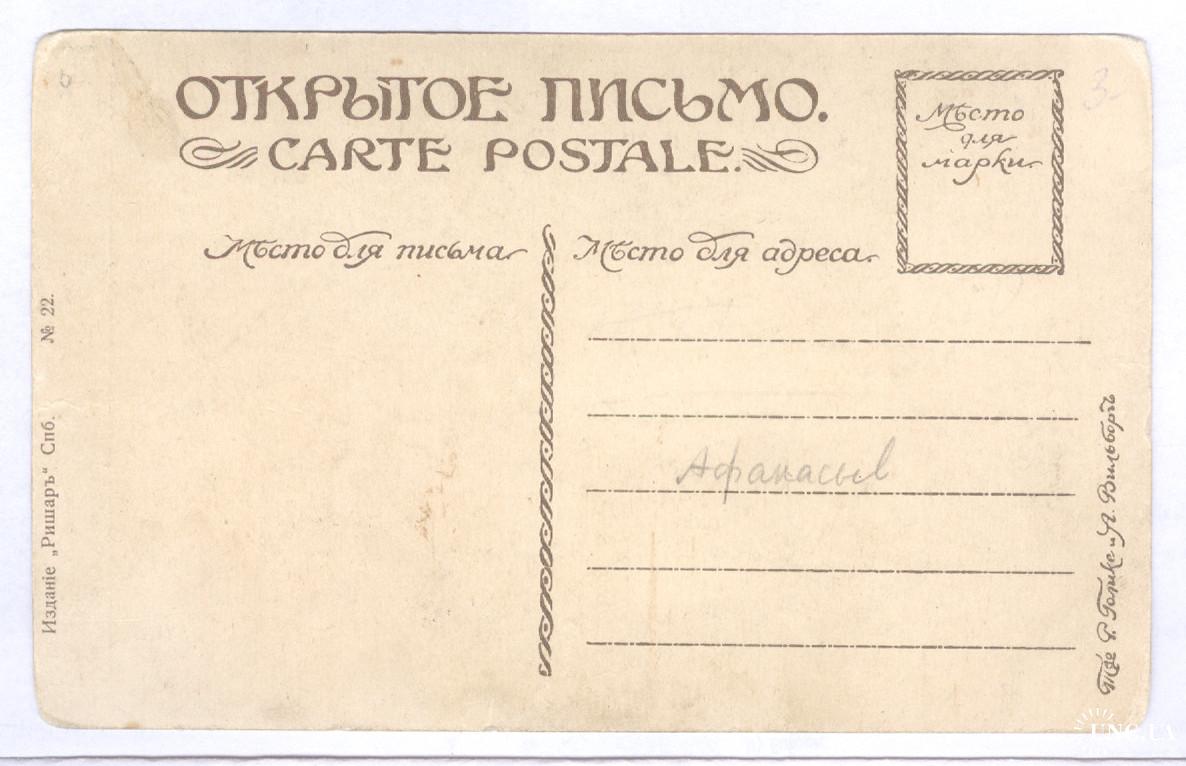 ОТКРЫТОЕ ПИСЬМО.
CARTE POSTALE.
Мѣсто
для
марки
Мѣсто для письма
Мѣсто для адреса.
Афанасьев
Изданіе „Ришаръ“ Спб. № 22.
Р. Голике и А. Вильборгъ
3-
UNC.UA